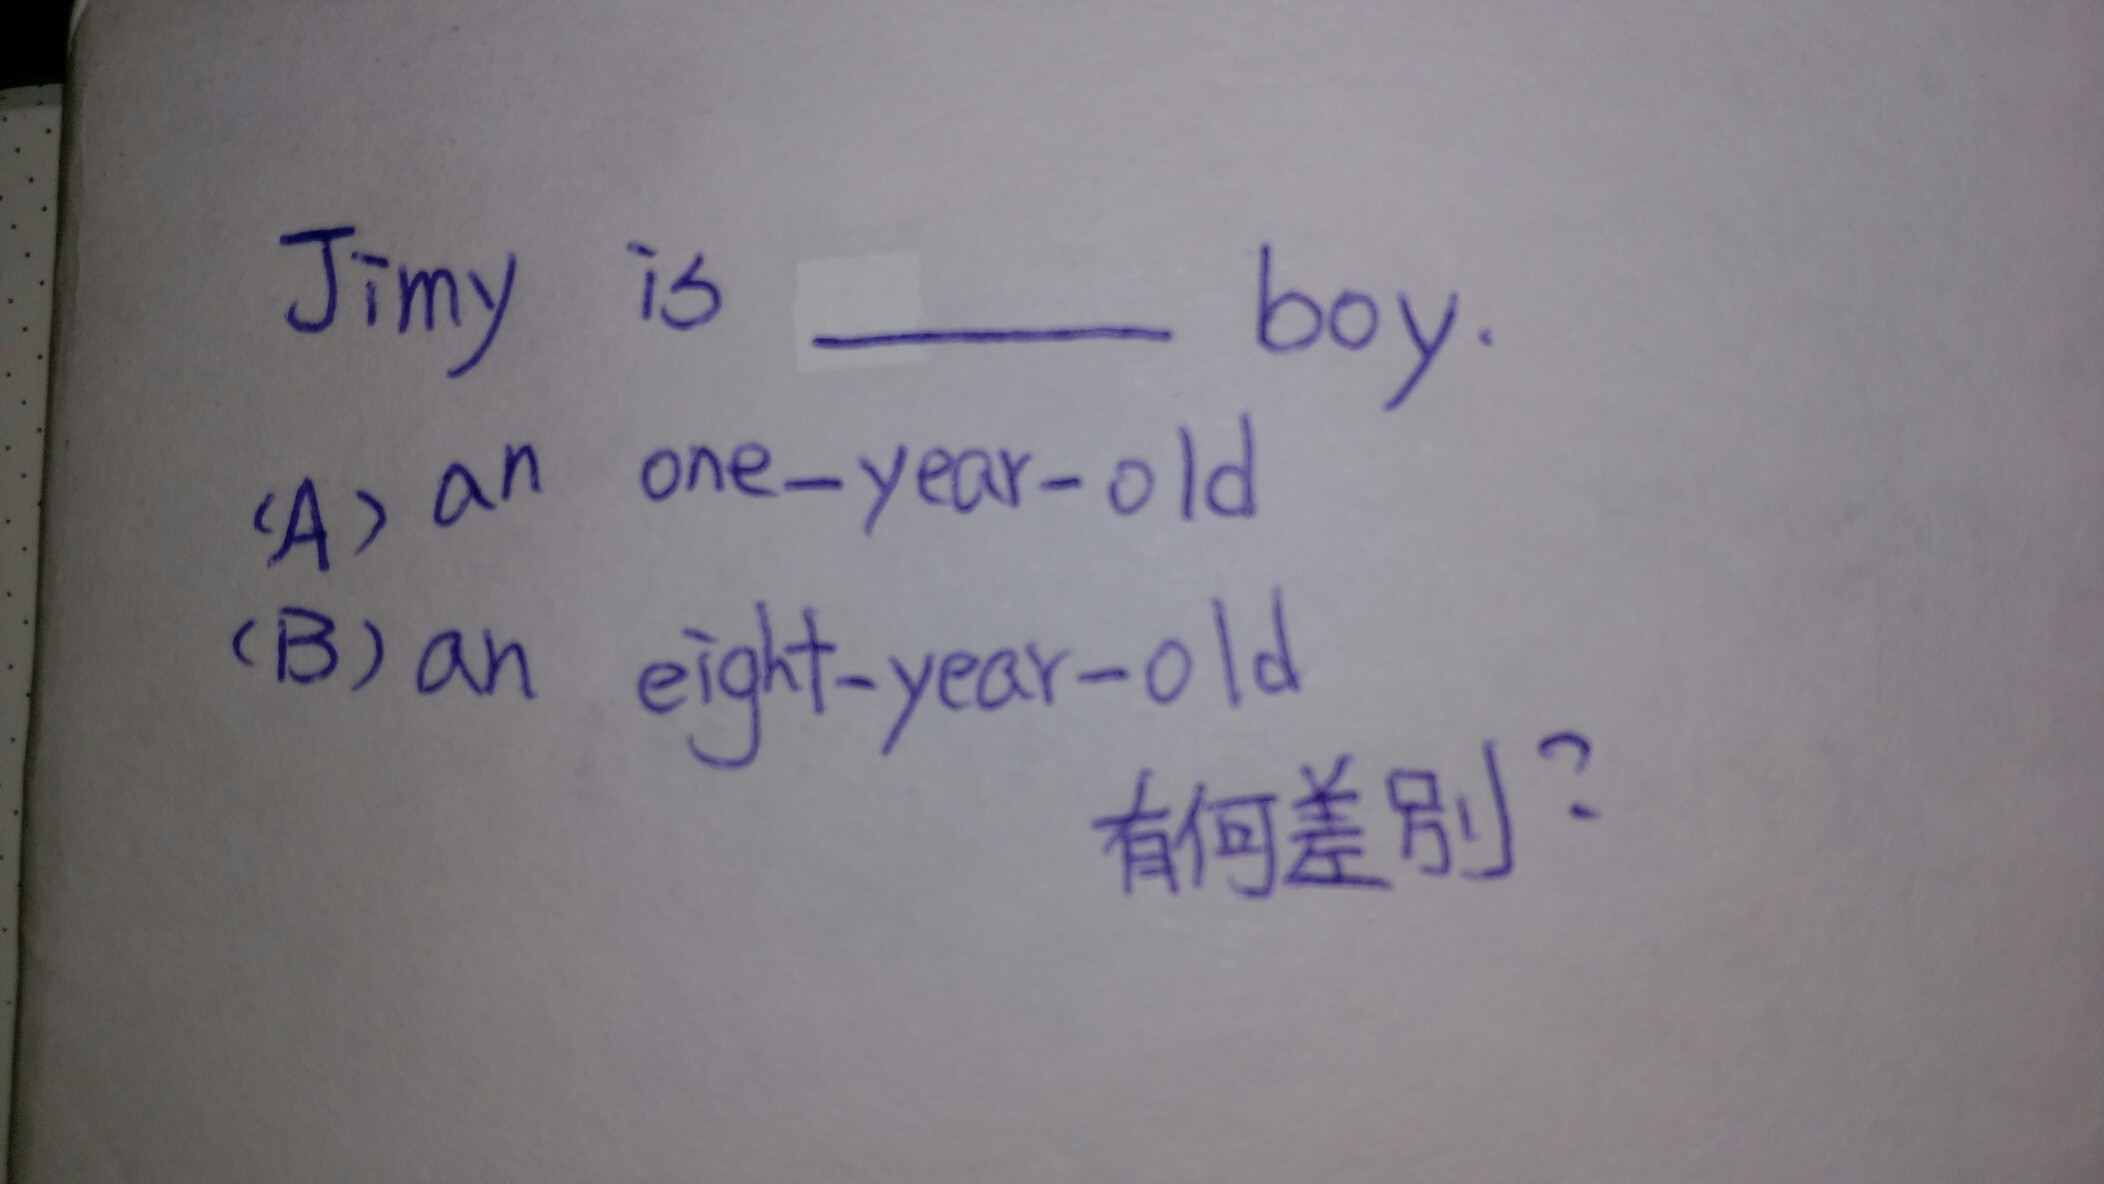 Jimy is ______ boy.
(A) an one-year-old
(B) an eight-year-old
有何差別?